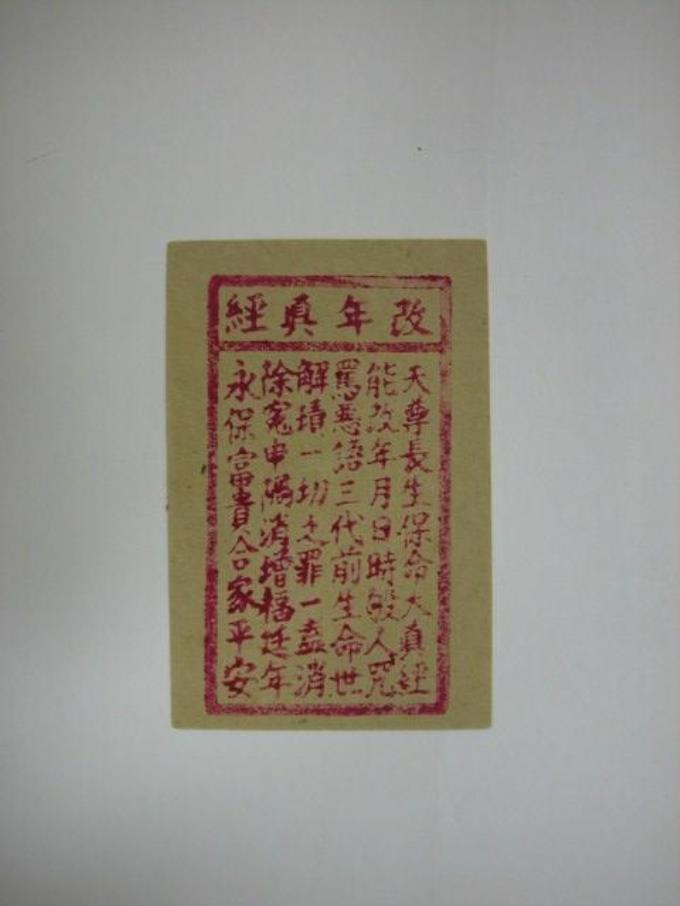 改年真經
天尊長生保命大真經
能改年月日時殺人咒
罵惡語三代前生命世
解積一切之罪一盡消
除冤申隅消增福廷年
永保富貴合家平安